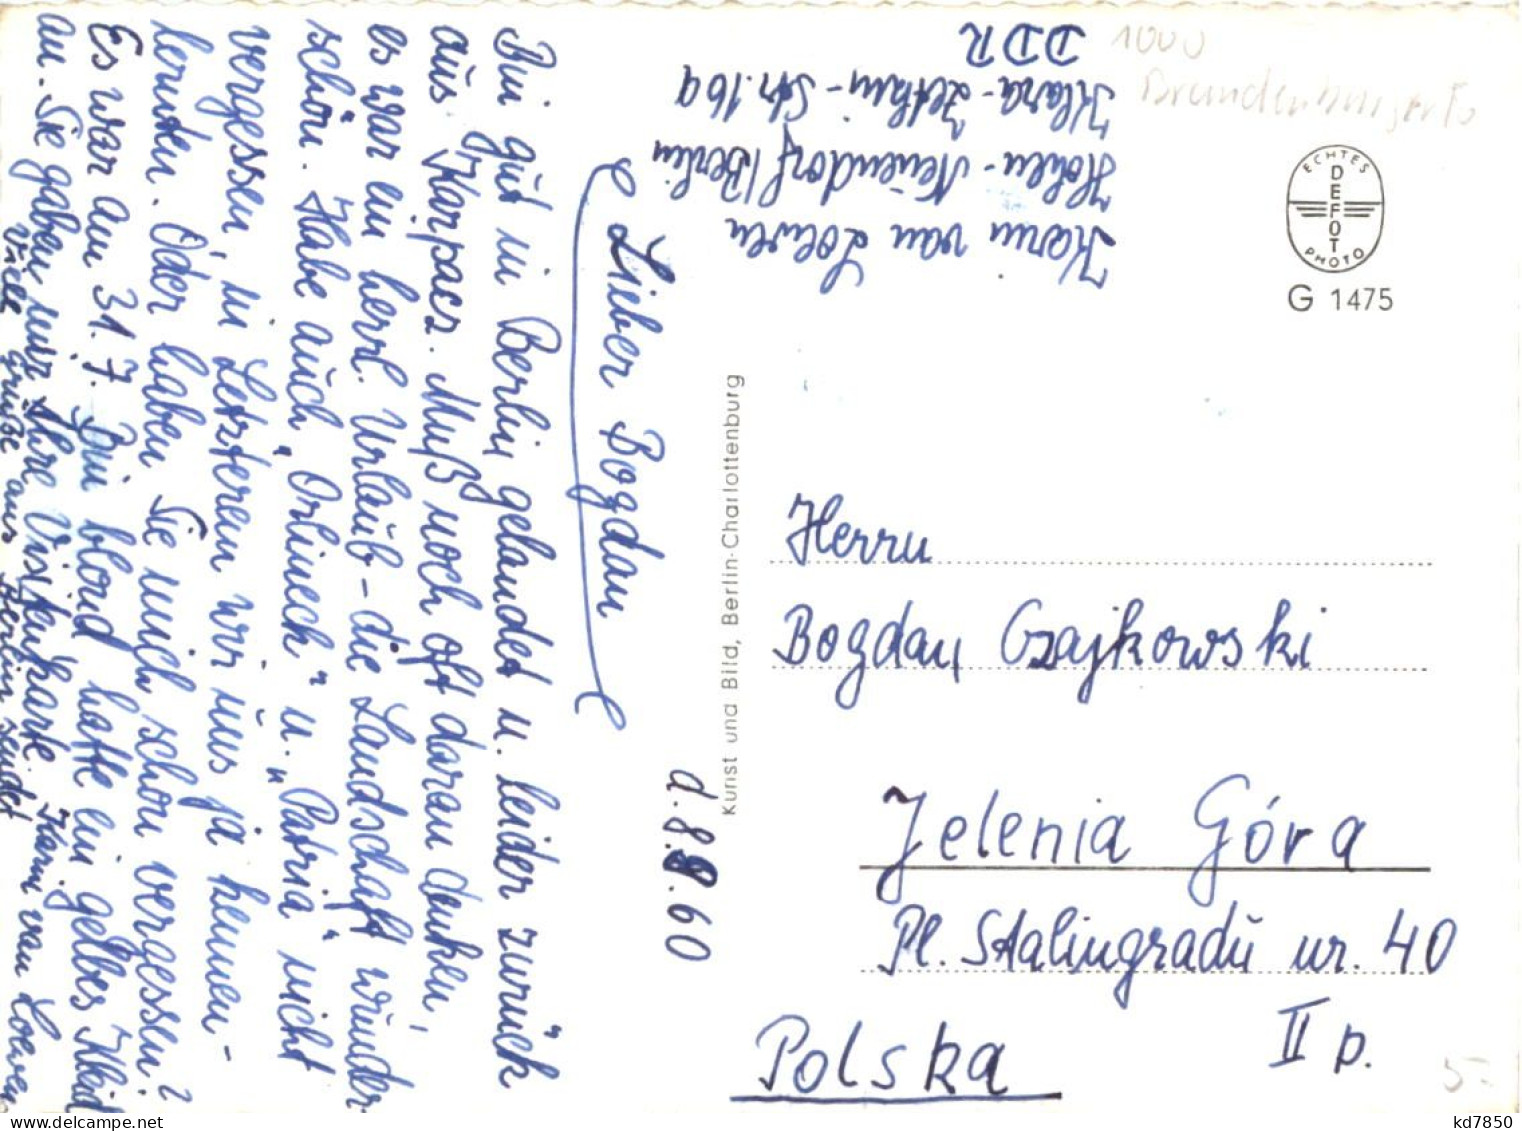 d. 8.8.60
Lieber Bogdan
Bin gut in Berlin gelandet u. leider zurück
aus Karpacz. Muß noch oft daran denken,
es war ein herrl. Urlaub - die Landschaft wunder-
schön. Habe auch „Orlineck“ u. „Patria“ nicht
vergessen, in Letzterem wir uns ja kennen-
lernten. Oder haben Sie mich schon vergessen?
Es war am 31.7. Bin blond hatte ein gelbes Kleid
an. Sie gaben mir Ihre Visitenkarte.
Viele Grüße aus Berlin sendet Karin van Loewen
Karin van Loewen
Hohen-Neuendorf/Berlin
Klara-Zetkin-Str. 169
DDR
1000
Brandenburger To
ECHTES
DEFOT
PHOTO
G 1475
Kunst und Bild, Berlin-Charlottenburg
Herrn
Bogdan Czajkowski
Jelenia Góra
Pl. Stalingradu nr. 40
II p.
Polska
5.-
kd7850